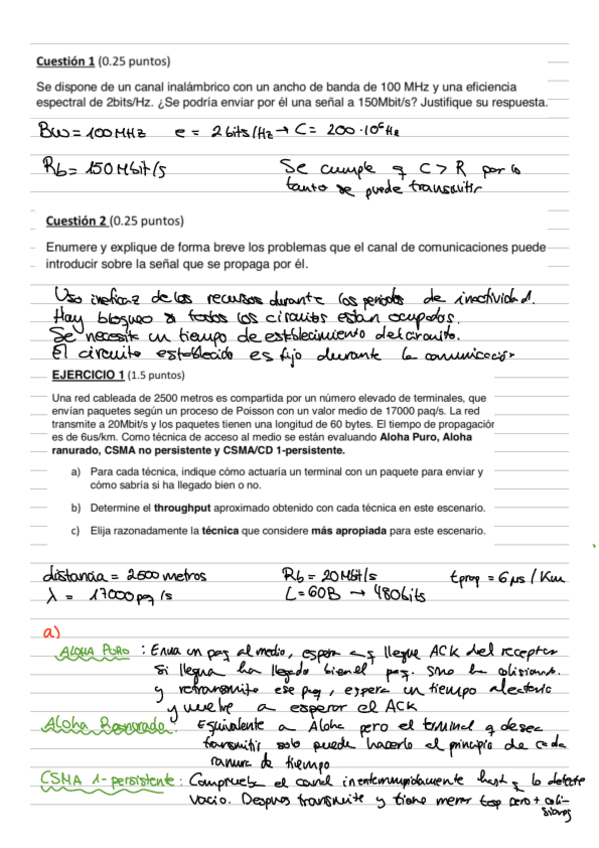 Cuestión 1 (0.25 puntos)
Se dispone de un canal inalámbrico con un ancho de banda de 100 MHz y una eficiencia
espectral de 2bits/Hz. ¿Se podría enviar por él una señal a 150Mbit/s? Justifique su respuesta.
Bw = 100 MHz e = 2 bits/Hz → C = 200·10⁶ Hz
Rb = 150 Mbit/s Se cumple q C > R por lo
tanto se puede transmitir
Cuestión 2 (0.25 puntos)
Enumere y explique de forma breve los problemas que el canal de comunicaciones puede
introducir sobre la señal que se propaga por él.
Uso ineficaz de los recursos durante los periodos de inactividad.
Hay bloqueo si todos los circuitos están ocupados.
Se necesita un tiempo de establecimiento del circuito.
El circuito establecido es fijo durante la comunicación
EJERCICIO 1 (1.5 puntos)
Una red cableada de 2500 metros es compartida por un número elevado de terminales, que
envían paquetes según un proceso de Poisson con un valor medio de 17000 paq/s. La red
transmite a 20Mbit/s y los paquetes tienen una longitud de 60 bytes. El tiempo de propagación
es de 6us/km. Como técnica de acceso al medio se están evaluando Aloha Puro, Aloha
ranurado, CSMA no persistente y CSMA/CD 1-persistente.
a) Para cada técnica, indique cómo actuaría un terminal con un paquete para enviar y
cómo sabría si ha llegado bien o no.
b) Determine el throughput aproximado obtenido con cada técnica en este escenario.
c) Elija razonadamente la técnica que considere más apropiada para este escenario.
distancia = 2500 metros Rb = 20 Mbit/s tprop = 6 µs / Km
λ = 17000 paq/s L = 60B → 480 bits
a)
ALOHA PURO : Envia un paq al medio, espera a q llegue ACK del receptor
si llegua ha llegado bien el paq. sino ha colisionado.
y retransmite ese paq, espera un tiempo aleatorio
y vuelve a esperar el ACK
Aloha Ranurado: Equivalente a Aloha pero el terminal q desea
transmitir solo puede hacerlo al principio de cada
ranura de tiempo
CSMA 1-persistente : Comprueba el canal ininterrumpidamente hasta q lo detecte
vacio. Despues transmite y tiene menor tesp pero + coli-
siones